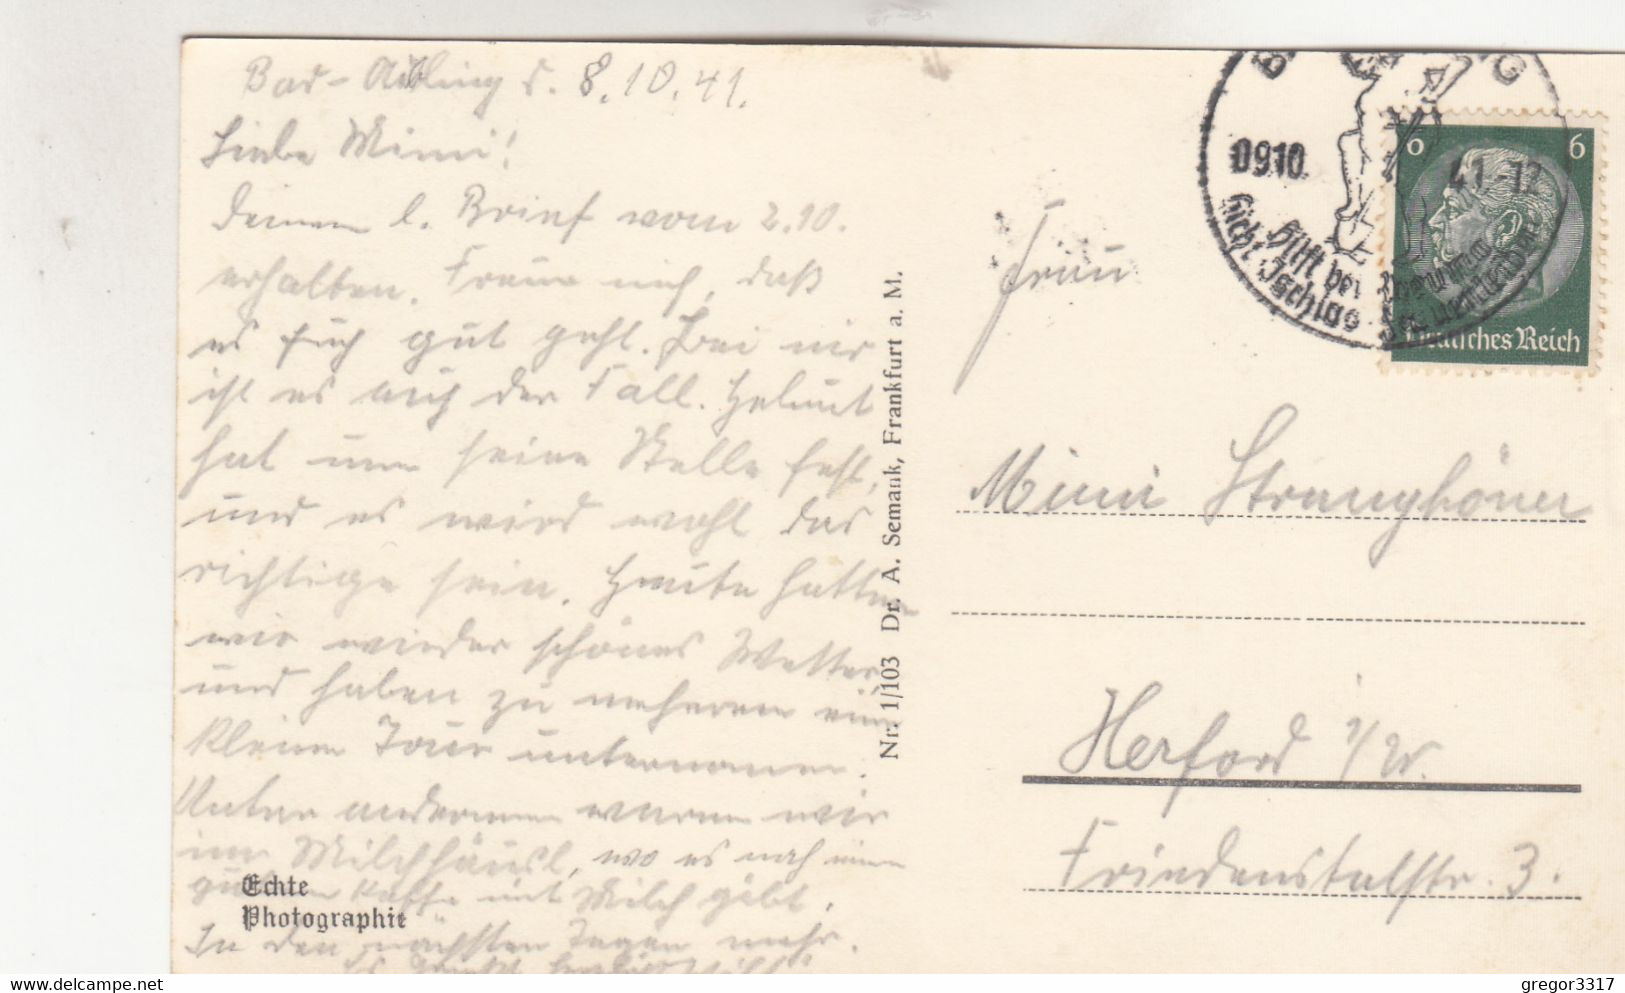 Bad-Aibling d. 8.10.41.
Liebe Mimi!
Deinen l. Brief vom 2.10.
erhalten. Freue mich, daß
es Euch gut geht. Bei mir
ist es auch der Fall. Helmut
hat nun seine Stelle fest,
und es wird wohl das
richtige sein. Heute hatten
wir wieder schönes Wetter
und haben zu mehreren eine
kleine Tour unternommen.
Unter anderem waren wir
im Milchhäusl, wo es noch einen
guten Kaffe mit Milch gibt.
In den nächsten Tagen mehr.
Es
Echte
Photographie
Nr. 1/103 Dr. A. Semank, Frankfurt a. M.
B G
0910. 41.-12
hilft bei Rheuma
Gicht Ischias
6 6
Deutsches Reich
Frau
Mimi Stranghöner
Herford i/W.
Friedenstalstr. 3.